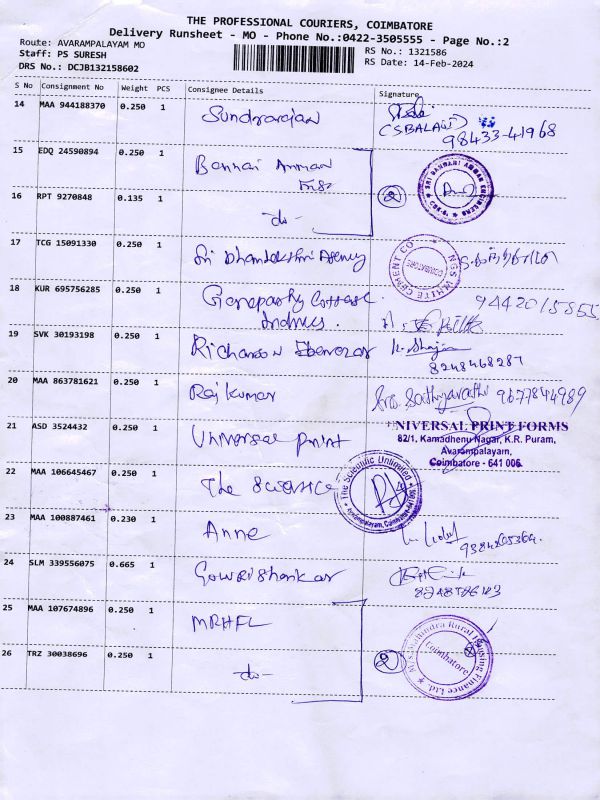 THE PROFESSIONAL COURIERS, COIMBATORE
Delivery Runsheet - MO - Phone No.:0422-3505555 - Page No.:2
Route: AVARAMPALAYAM MO
Staff: PS SURESH
DRS No.: DCJB132158602
RS No.: 1321586
RS Date: 14-Feb-2024
S No Consignment No Weight PCS Consignee Details Signature
14 MAA 944188370 0.250 1 Sundrarajan
(SBALAJI)
98433-41968
15 EDQ 24590894 0.250 1 Bannai Amman
SRI BANNARI AMMAN ENGINEERS
2
16 RPT 9270848 0.135 1 -do-
17 TCG 15091330 0.250 1 Sri Dhanalakshri Agency
NGS WHITE CEMENT CO
COIMBATORE
18 KUR 695756285 0.250 1 Ganapathy Cottage
Indrus.
9442015855
19 SVK 30193198 0.250 1 Richardson Ebenezar
K. Shajin
8248468287
20 MAA 863781621 0.250 1 Rajkumar
Sathyavathi 9677844989
21 ASD 3524432 0.250 1 Universal print
NIVERSAL PRINT FORMS
82/1, Kamadhenu Nagar, K.R. Puram,
Avarampalayam,
Coimbatore - 641 006.
22 MAA 106645467 0.250 1 The Science
The Scientific Unlimited
Avarampalayam, Coimbatore
23 MAA 100887461 0.230 1 Anne
24 SLM 339556075 0.665 1 Gowrishankar
25 MAA 107674896 0.250 1 MRHFL
M/s. Mahindra Rural Housing Finance Ltd.
Coimbatore
2
26 TRZ 30038696 0.250 1 -do-